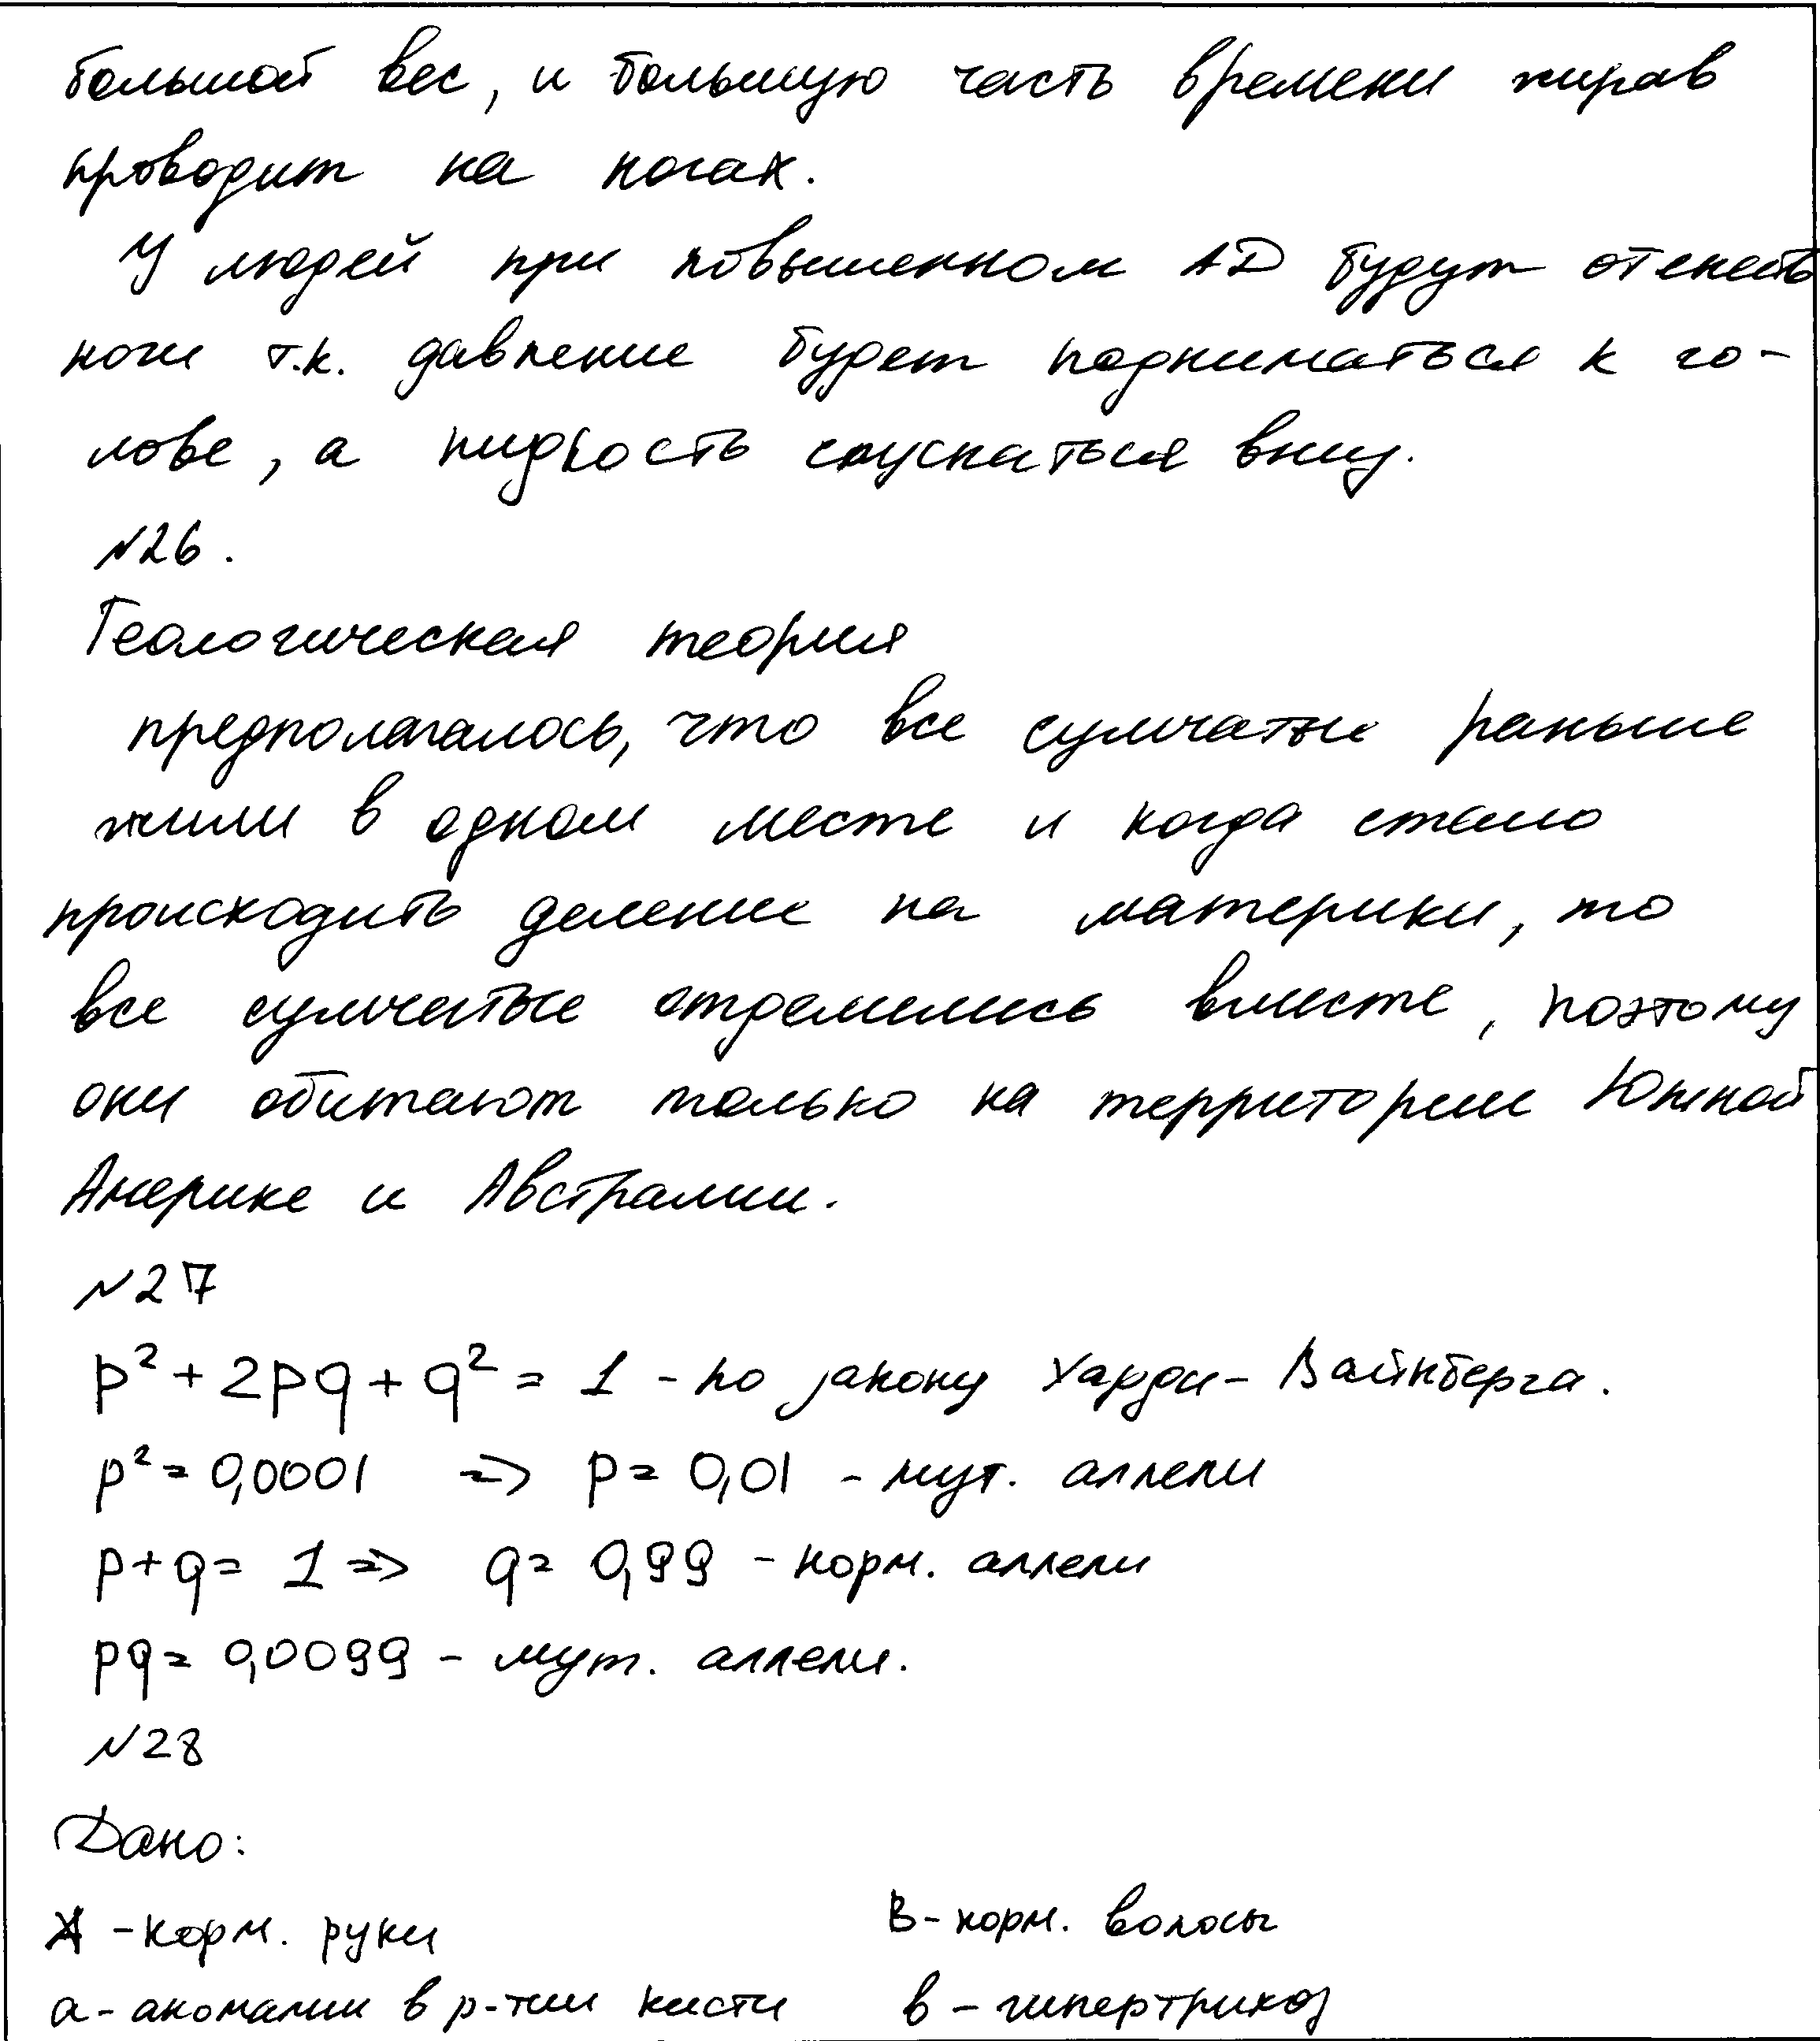 большой вес, и большую часть времени жираф
проводит на ногах.
У людей при повышенном АД будут отекать
ноги т.к. давление будет подниматься к го-
лове, а жидкость спускаться вниз.
№26.
Геологическая теория
предполагалось, что все сумчатые раньше
жили в одном месте и когда стало
происходить деление на материки, то
все сумчатые стремились вместе, поэтому
они обитают только на территории Южной
Америке и Австралии.
№27
p²+2pq+q²=1 - по закону Харди-Вайнберга.
p²=0,0001 => p=0,01 - мут. аллели
p+q=1 => q=0,99 - норм. аллели
pq=0,0099 - мут. аллели.
№28
Дано:
А - норм. руки B - норм. волосы
а - аномалии в р-тии кисти в - гипертрихоз